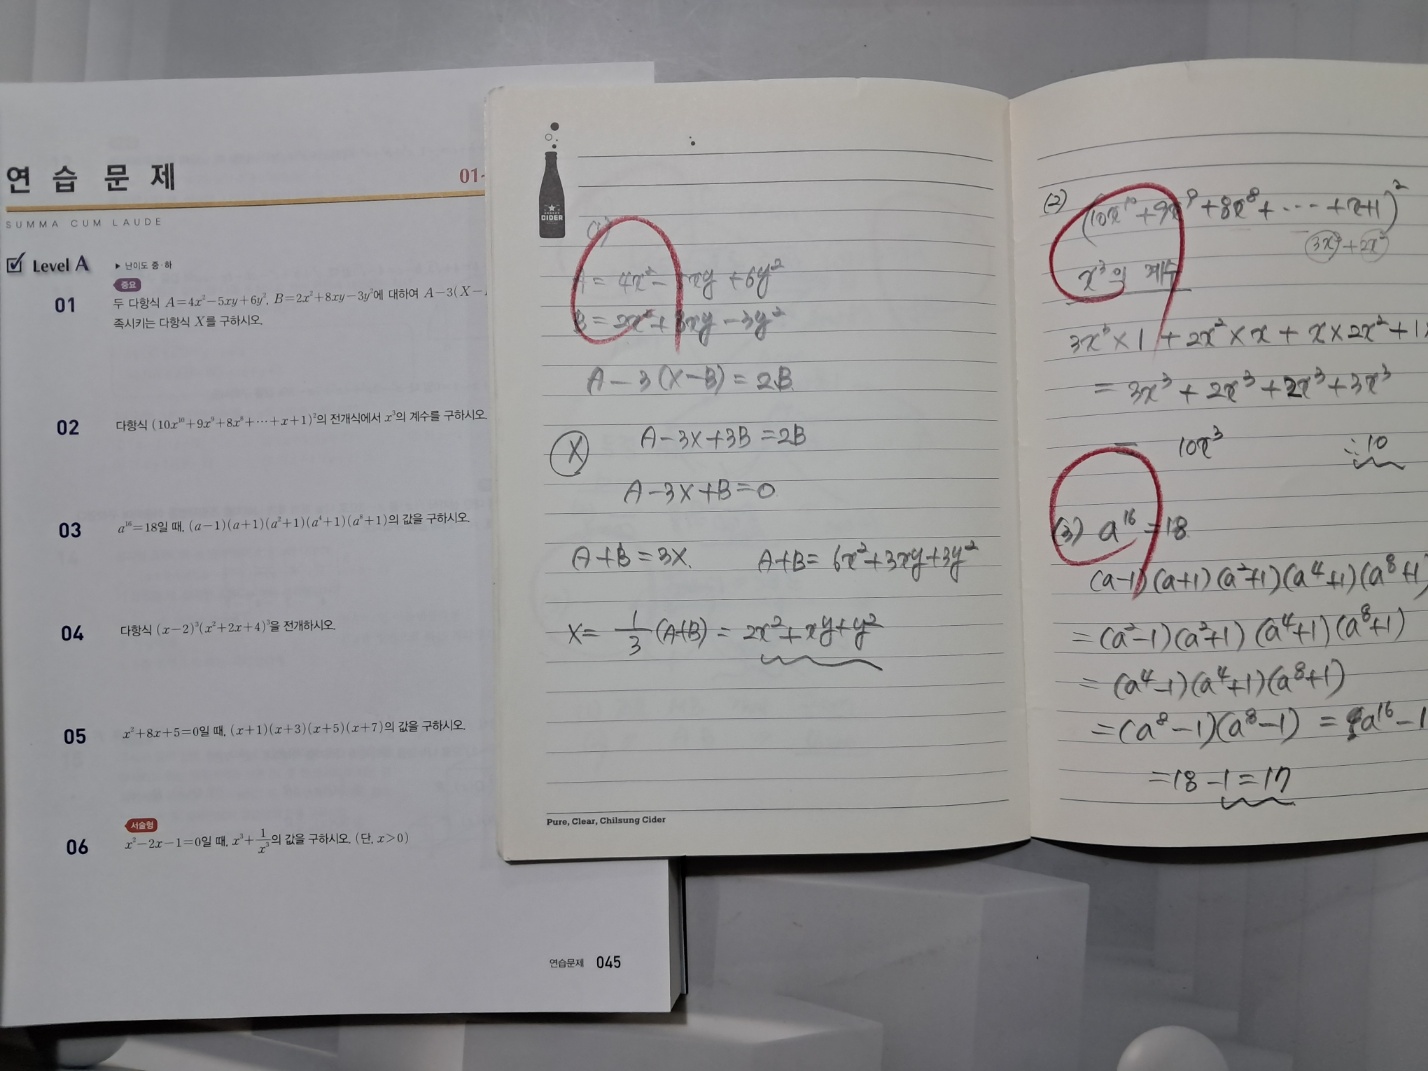 연습문제
01-
SUMMA CUM LAUDE
Level A ▶ 난이도 중·하
중요
01 두 다항식 A=4x²-5xy+6y², B=2x²+8xy-3y²에 대하여 A-3(X-
족시키는 다항식 X를 구하시오.
02 다항식 (10x¹⁰+9x⁹+8x⁸+⋯+x+1)²의 전개식에서 x³의 계수를 구하시오
03 a¹⁶=18일 때, (a-1)(a+1)(a²+1)(a⁴+1)(a⁸+1)의 값을 구하시오.
04 다항식 (x-2)³(x²+2x+4)³을 전개하시오
05 x²+8x+5=0일 때, (x+1)(x+3)(x+5)(x+7)의 값을 구하시오.
서술형
06 x²-2x-1=0일 때, x³+1/x³의 값을 구하시오. (단, x>0)
연습문제 045
CIDER
(1)
A=4x²-5xy+6y²
B=2x²+8xy-3y²
A-3(X-B)=2B
X
A-3X+3B=2B
A-3X+B=0
A+B=3X. A+B=6x²+3xy+3y²
X=1/3(A+B)=2x²+xy+y²
Pure, Clear, Chilsung Cider
(2) (10x¹⁰+9x⁹+8x⁸+⋯+x+1)²
3x³+2x²
x³의 계수
3x³×1+2x²×x+x×2x²+1
=3x³+2x³+2x³+3x³
= 10x³ ∴10
(3) a¹⁶=18
(a-1)(a+1)(a²+1)(a⁴+1)(a⁸+1
=(a²-1)(a²+1)(a⁴+1)(a⁸+1)
=(a⁴-1)(a⁴+1)(a⁸+1)
=(a⁸-1)(a⁸-1)=a¹⁶-1
=18-1=17